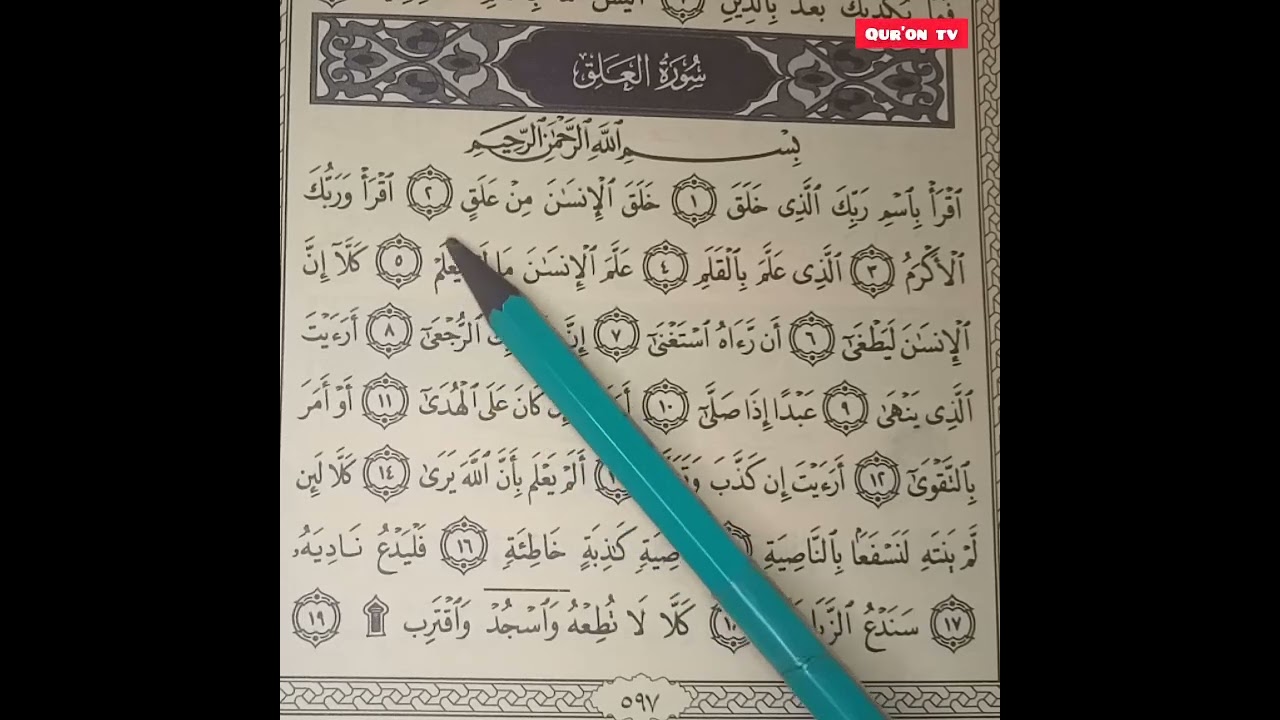 Qur'on tv
بعد بالدين
سُورَةُ العَلَقِ
بِسْمِ ٱللَّهِ ٱلرَّحْمَٰنِ ٱلرَّحِيمِ
ٱقْرَأْ بِٱسْمِ رَبِّكَ ٱلَّذِى خَلَقَ ١ خَلَقَ ٱلْإِنسَٰنَ مِنْ عَلَقٍ ٢ ٱقْرَأْ وَرَبُّكَ
ٱلْأَكْرَمُ ٣ ٱلَّذِى عَلَّمَ بِٱلْقَلَمِ ٤ عَلَّمَ ٱلْإِنسَٰنَ مَا يَعْلَمْ ٥ كَلَّآ إِنَّ
ٱلْإِنسَٰنَ لَيَطْغَىٰٓ ٦ أَن رَّءَاهُ ٱسْتَغْنَىٰٓ ٧ إِنَّ ٱلرُّجْعَىٰٓ ٨ أَرَءَيْتَ
ٱلَّذِى يَنْهَىٰ ٩ عَبْدًا إِذَا صَلَّىٰٓ ١٠ كَانَ عَلَى ٱلْهُدَىٰٓ ١١ أَوْ أَمَرَ
بِٱلتَّقْوَىٰٓ ١٢ أَرَءَيْتَ إِن كَذَّبَ أَلَمْ يَعْلَم بِأَنَّ ٱللَّهَ يَرَىٰ ١٤ كَلَّا لَئِن
لَّمْ يَنتَهِ لَنَسْفَعًۢا بِٱلنَّاصِيَةِ كَٰذِبَةٍ خَاطِئَةٍ ١٦ فَلْيَدْعُ نَادِيَهُۥ
١٧ سَنَدْعُ كَلَّا لَا تُطِعْهُ وَٱسْجُدْ وَٱقْتَرِب ۩ ١٩
٥٩٧